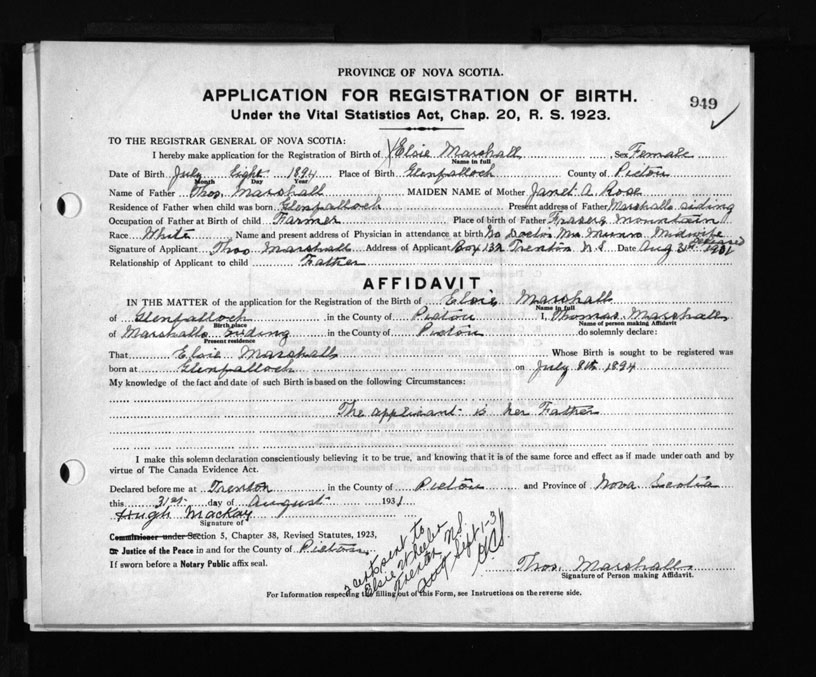 PROVINCE OF NOVA SCOTIA.
APPLICATION FOR REGISTRATION OF BIRTH.
949
Under the Vital Statistics Act, Chap. 20, R. S. 1923.
TO THE REGISTRAR GENERAL OF NOVA SCOTIA:
I hereby make application for the Registration of Birth of Elsie Marshall Sex Female
Name in full
Date of Birth July Eight 1894 Place of Birth Glenfalloch County of Pictou
Month Day Year
Name of Father Thos. Marshall MAIDEN NAME of Mother Janet A. Rose
Residence of Father when child was born Glenfalloch Present address of Father Marshalls siding
Occupation of Father at Birth of child Farmer Place of birth of Father Frasers Mountain
Race White Name and present address of Physician in attendance at birth No Doctor Mrs Munro Midwife Deceased
Signature of Applicant Thos Marshall Address of Applicant Box 132 Trenton N S Date Aug 31st 1931
Relationship of Applicant to child Father
AFFIDAVIT
IN THE MATTER of the application for the Registration of the Birth of Elsie Marshall
Name in full
of Glenfalloch in the County of Pictou I, Thomas Marshall
Birth place Name of person making Affidavit
of Marshalls Siding in the County of Pictou do solemnly declare:
Present residence
That Elsie Marshall Whose Birth is sought to be registered was
born at Glenfalloch on July 8th 1894
My knowledge of the fact and date of such Birth is based on the following Circumstances:
The applicant is her Father
I make this solemn declaration conscientiously believing it to be true, and knowing that it is of the same force and effect as if made under oath and by
virtue of The Canada Evidence Act.
Declared before me at Trenton in the County of Pictou and Province of Nova Scotia
this 31st day of August 1931
Hugh Mackay
Signature of
Commissioner under Section 5, Chapter 38, Revised Statutes, 1923,
or Justice of the Peace in and for the County of Pictou
If sworn before a Notary Public affix seal.
2 certs sent to
Elsie Wheeler
Trenton N.S.
Sept 1-31
Thos. Marshall
Signature of Person making Affidavit.
For Information respecting the filling out of this Form, see Instructions on the reverse side.